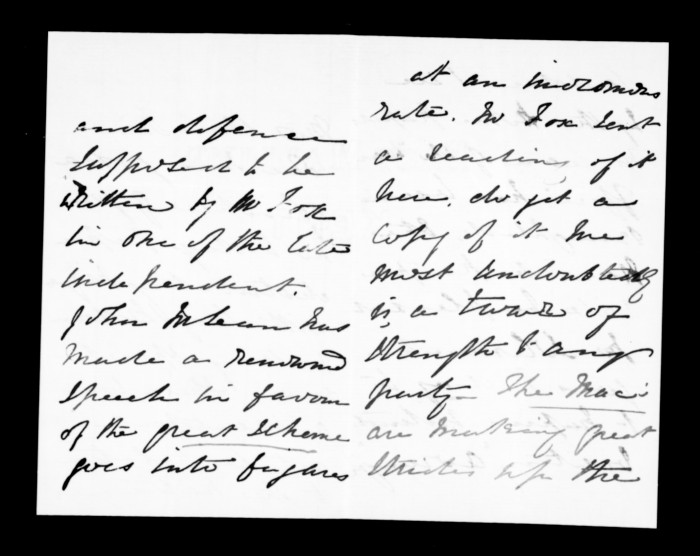 and defence
supposed to be
written by Mr Fox
in one of the late
independent.
John McLean has
made a renowned
speech in favour
of the great scheme
goes into figures
at an
rate. Mr Fox sent
a of it
here. do get a
copy of it he
most undoubtedly
is a tower of
strength to any
party - The Mac's
are making great
strides up the